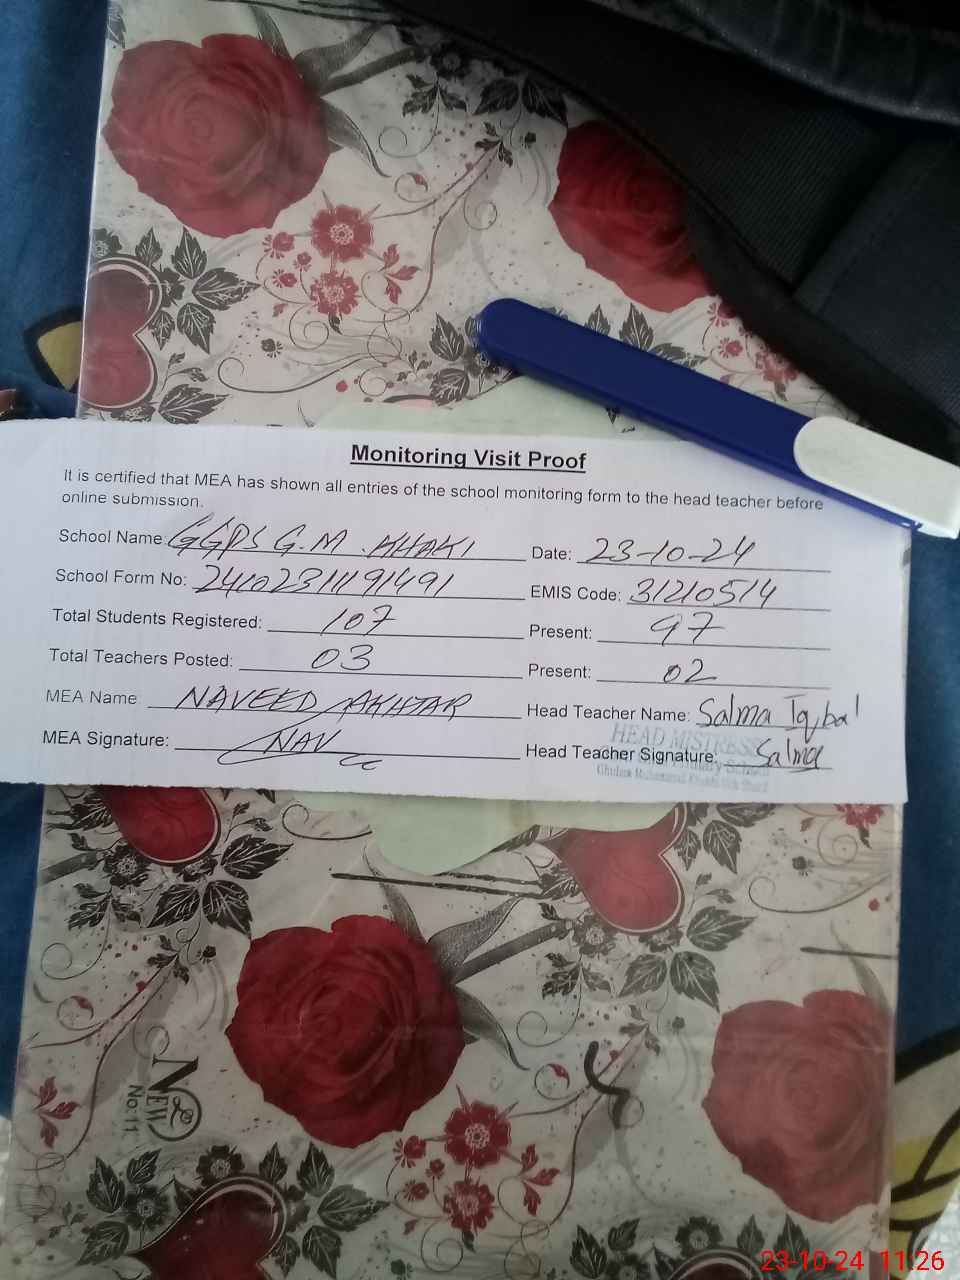 Monitoring Visit Proof
It is certified that MEA has shown all entries of the school monitoring form to the head teacher before
online submission.
School Name: GGPS G.M. KHAKI Date: 23-10-24
School Form No: 24102311191491 EMIS Code: 31210514
Total Students Registered: 107 Present: 97
Total Teachers Posted: 03 Present: 02
MEA Name NAVEED AKHTAR Head Teacher Name: Salma Iqbal
MEA Signature: NAV Head Teacher Signature. Salma
HEAD MISTRESS
Primary School
NEW
No:11
23-10-24 11:26